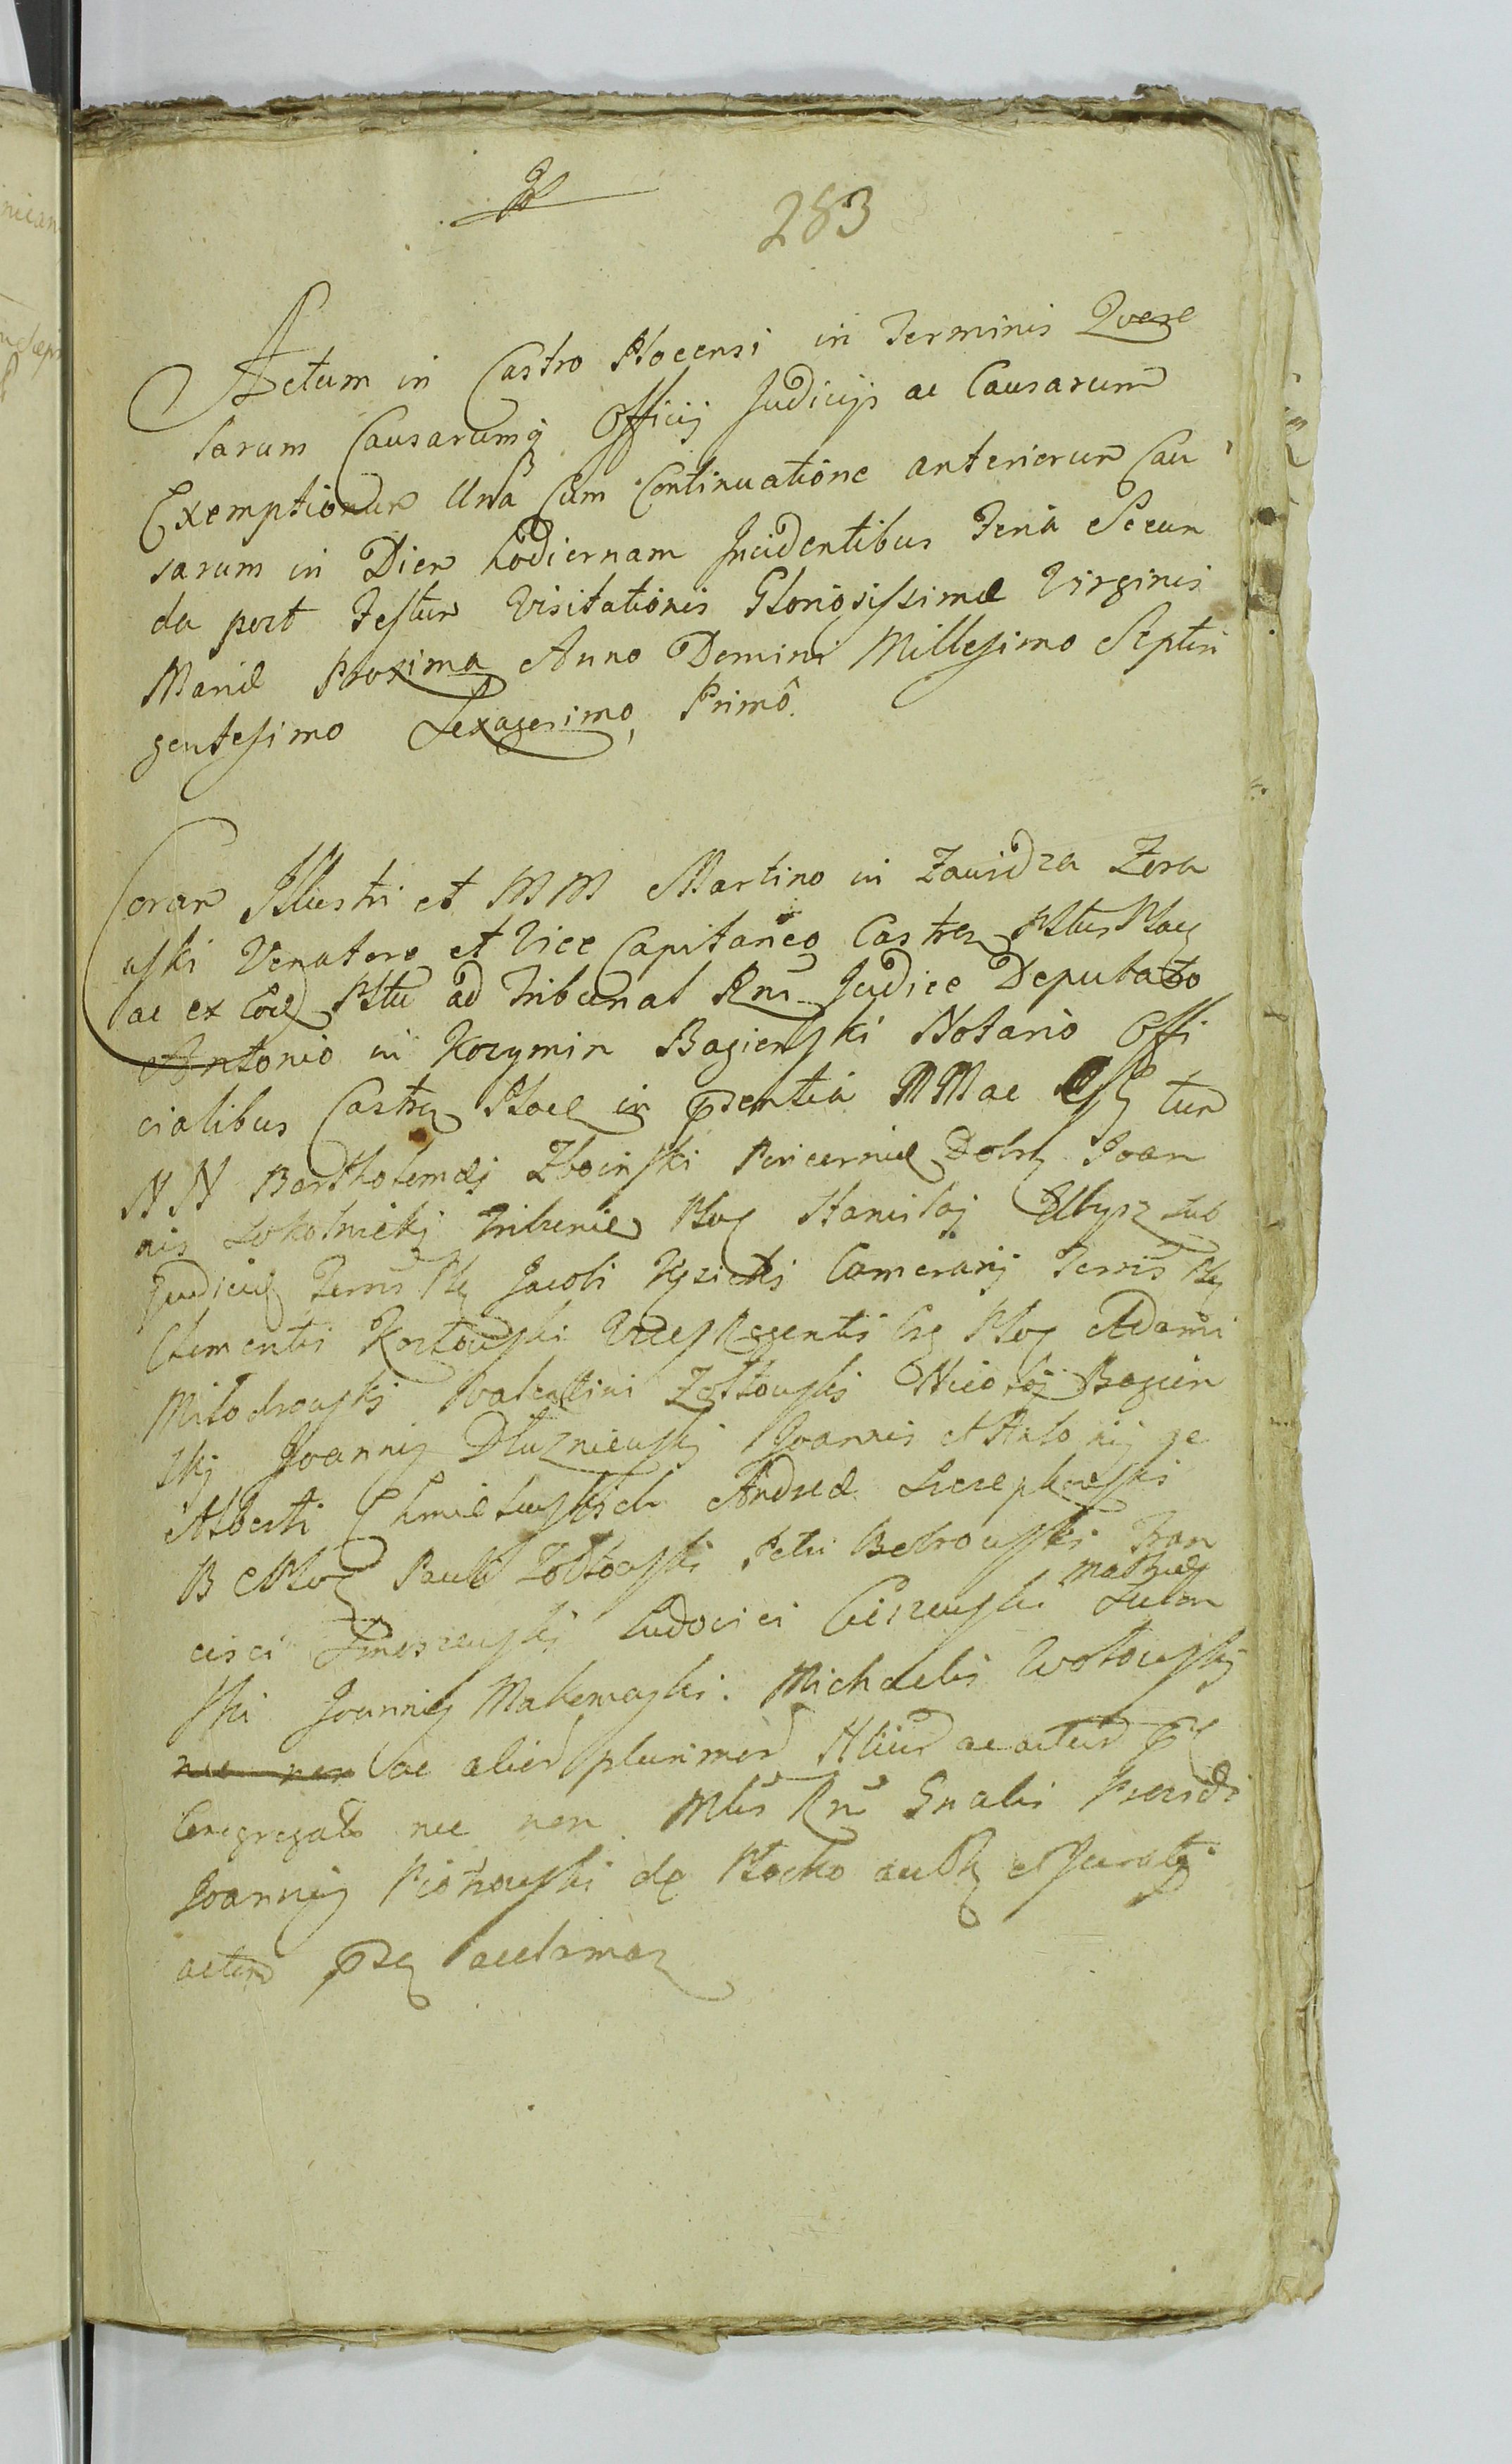 283
Actum in Castro Plocensi in Terminis Quere
larum Causarumq Officij Judicijs ac Causarum
Exemptionum Una Cum Continuatione anteriorum Cau
sarum in Diem hodiernam Incidentibus Feria Secun
da post Festum Visitationis Gloriosissimæ Virginis
Mariæ Proxima Anno Domini Millesimo Septin
gentesimo Sexagesimo Primo.
Coram Illustri et MM Martino in Zawidza Zora
wski Venatore et Vice Capitaneo Castren Pltus Ploc
ac ex eod Pltu ad Tribunal Rni Judice Deputato
Antonio in Kozymin Bagienski Notario Offi
cialibus Castren Ploc in psentia MM ac tum
NN Bartholomæi Zboinski Pincernæ Dobrz Joan
nis Sokolnicki Tribuni Ploc Stanislaj sub
Judicis Terris Jacobi Camerarij Terris
Clementis Vice Regentis Ploc Adami
Milodrowski Valentini Zoltowski Nicolaj Bagien
skj Joannis Dluzniewskj Joannis et Antonij ge
Alberti Chmielewskich Andreæ
B Ploc Pauli Zoltowski Petri Betrowski Fran
Mathiæ
cisci Ludovici Ciszewski
ski Joannis Makomaski. Michaelis Wolowskj
nec non ac aliord plurimord ac actud
Congregat nec non Mtis Rni Gnalis
Joannis Piotrowski de Plocko et Jurati
actum psen